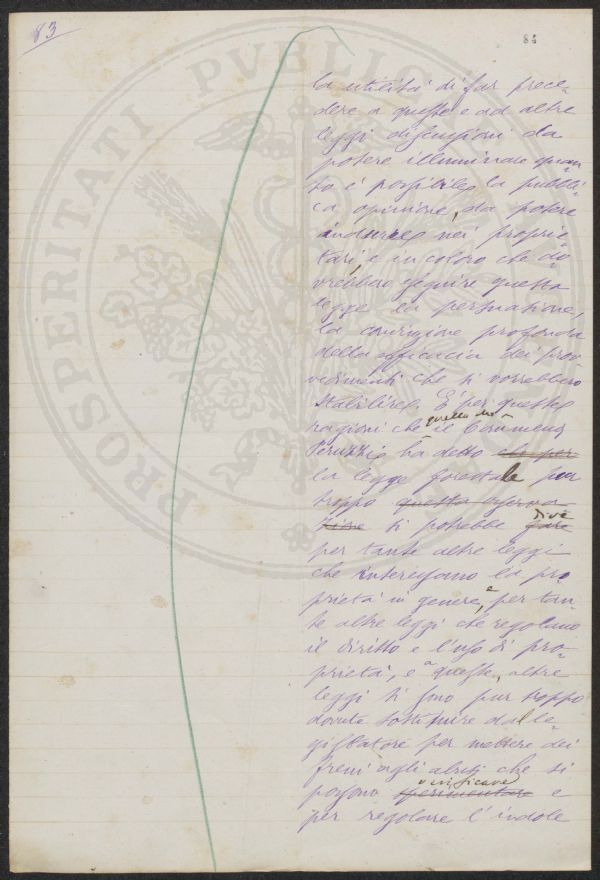 83
84
PROSPERITATI PVBLICAE
la utilità di far prece-
dere a queste e ad altre
leggi discussioni da
potere illuminare quan-
to è possibile, la pubbli-
ca opinione, da potere
indurre nei proprie-
tari, e in coloro che do-
vrebbero eseguire questa
legge la persuasione,
la convinzione profonda
della efficacia dei prov-
vedimenti che si vorrebbero
stabilire. E per queste
ragioni che quello che il Commend
Peruzzi ha detto che per
la legge forestale pur
troppo questa osserva
zione si potrebbe fare dire
per tante altre leggi
che interessano la pro
prietà in genere, e per tan-
te altre leggi che regolano
il diritto e l'uso di pro-
prietà, e a queste altre
leggi si sono pur troppo
dovute sostituire dal le-
gislatore per mettere dei
freni agli abusi che si
possono sperimentare verificare e
per regolare l'indole